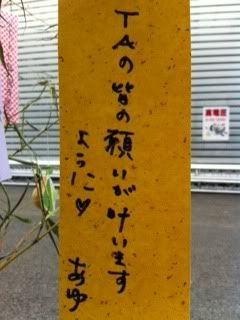 TAの皆の願いがけいます
ように♡
あゆ